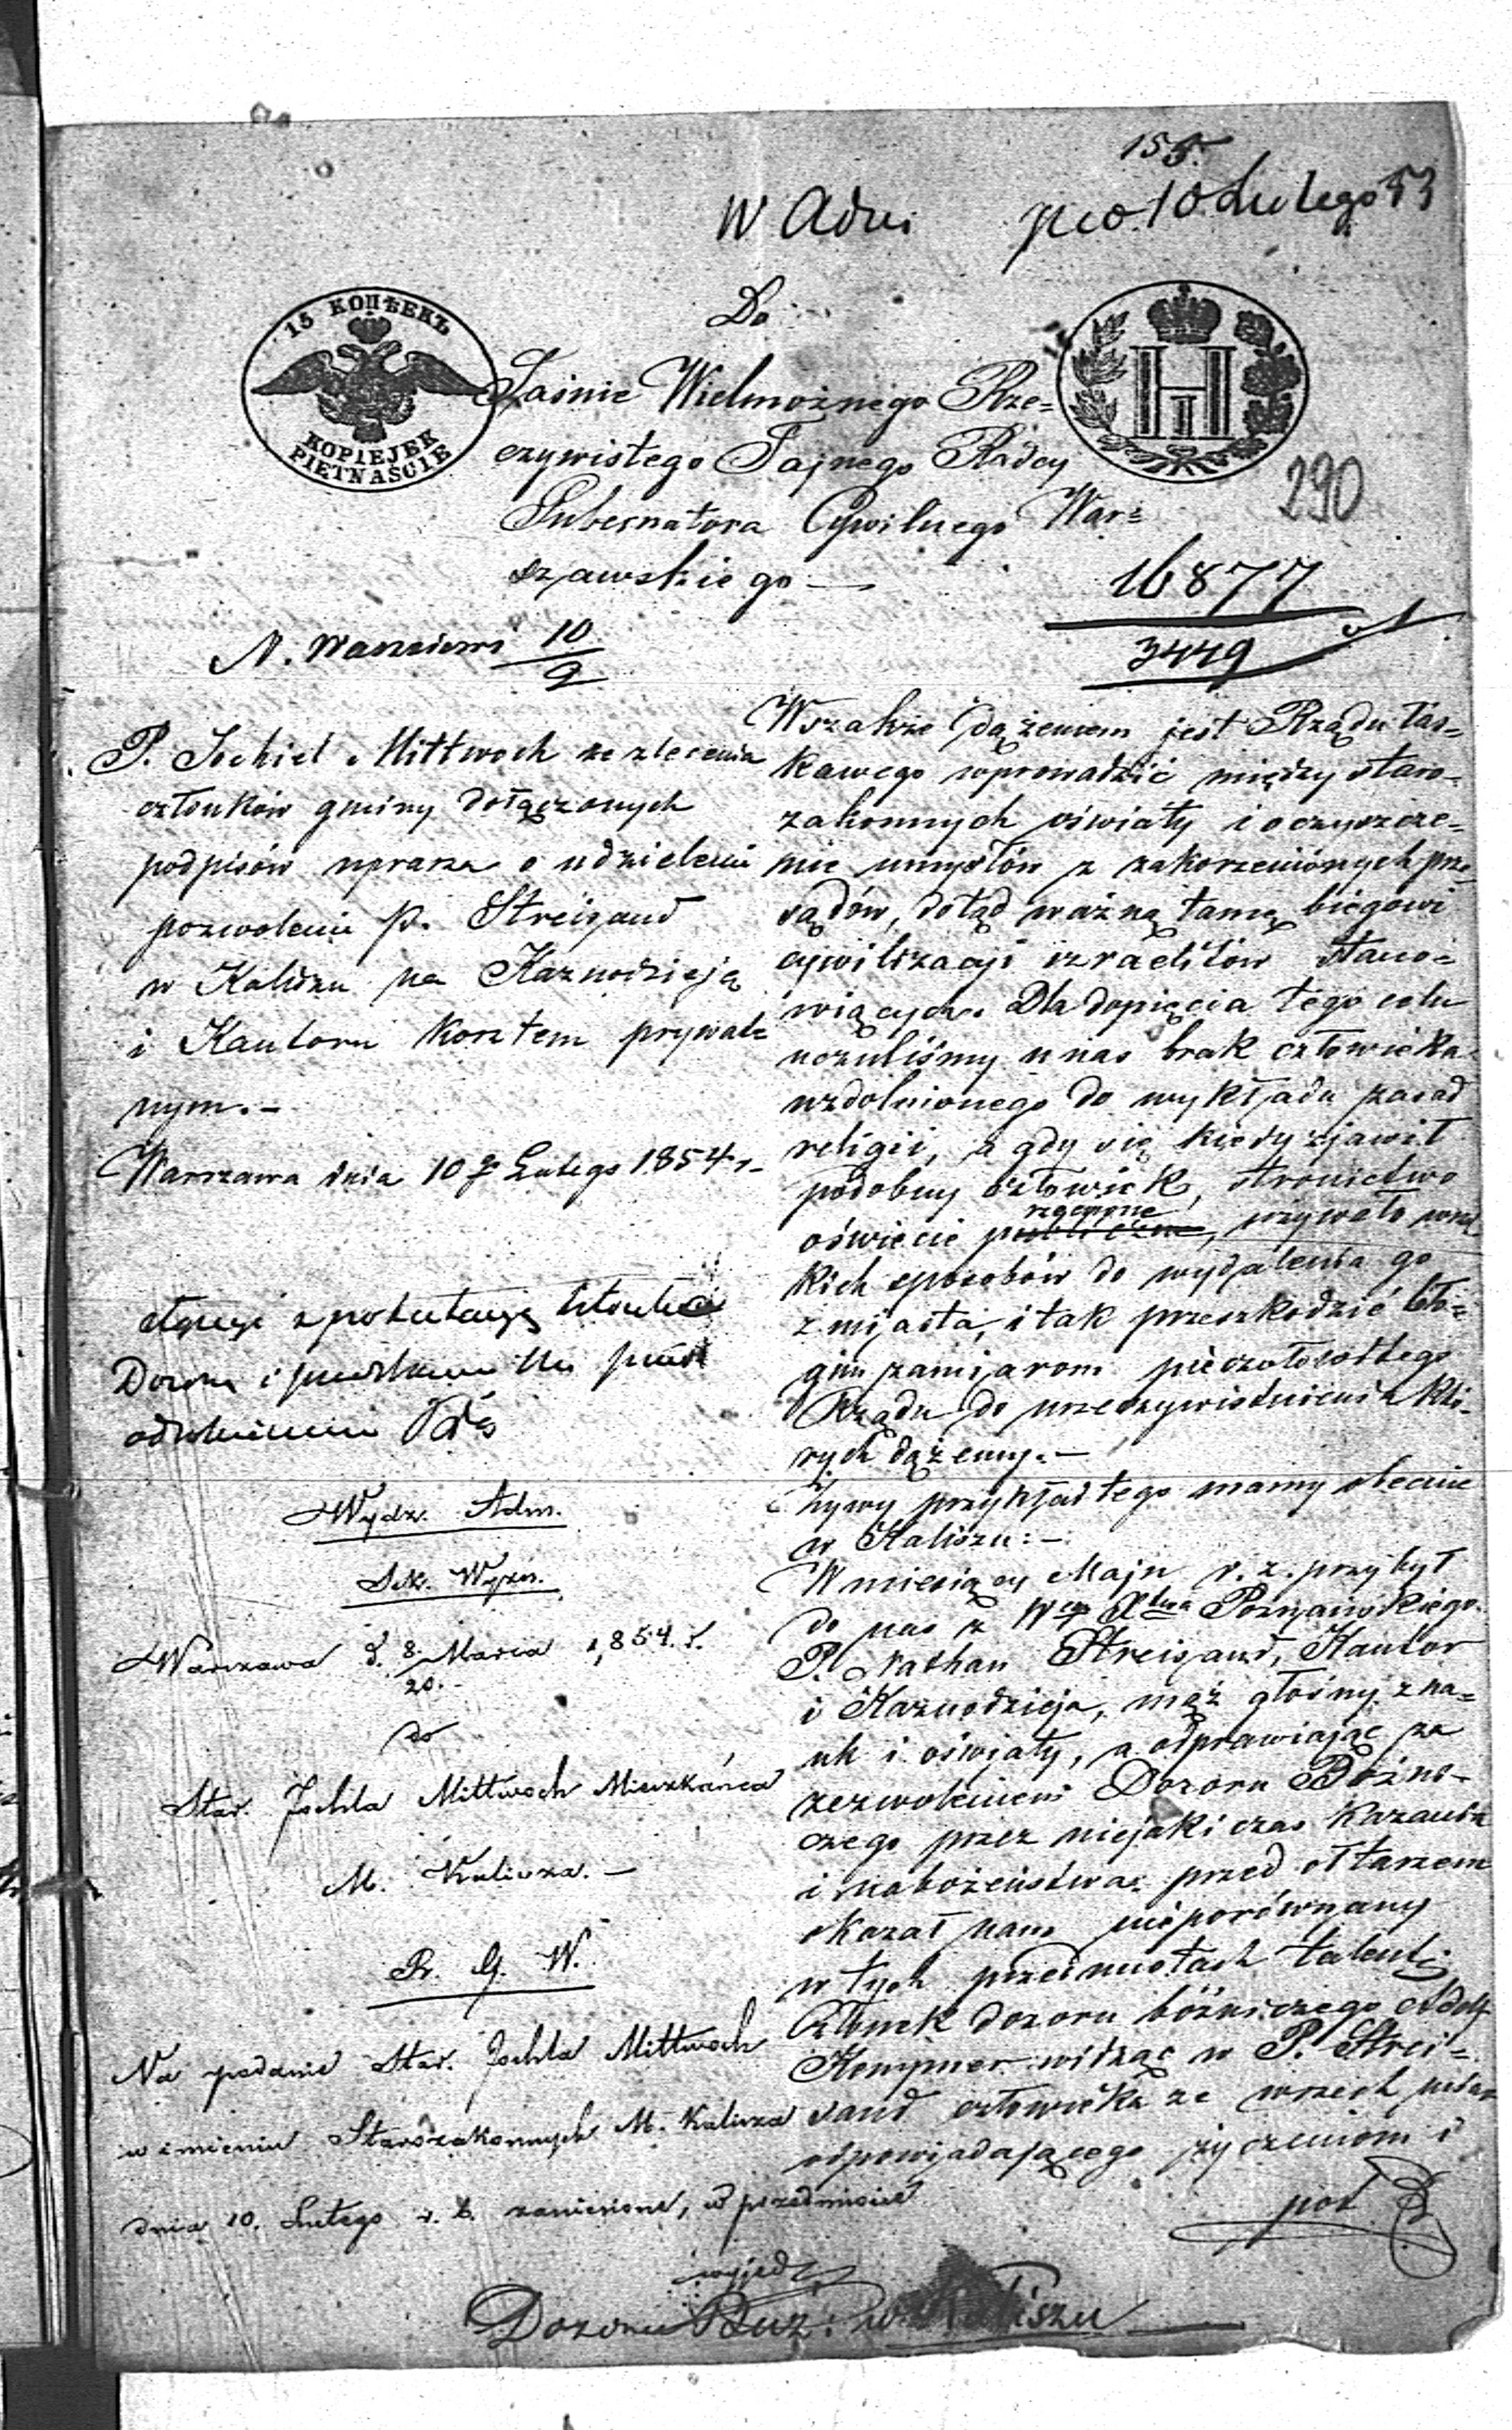 155.
W Adm pco 10 Lutego 53
15 КОПѢЕКЪ
KOPIEJEK
PIĘTNAŚCIE
Do
Jaśnie Wielmożnego Rze=
czywistego Tajnego Radcy
Gubernatora Cywilnego War=
szawskiego —
290
16877
3449
N. 10/2
P. Jochiel Mittwoch ze zlecenia
członków gminy dołączonych
podpisów uprasza o udzielenie
pozwolenia P. Streisand
w Kaliszu na Kaznodzieję
i Kantora kosztem prywat=
nym. –
Warszawa dnia 10 Lutego 1854 r.
Dozoru i
Wydz. Adm.
Sek. Wyzn.
Warszawa d. 8/20. Marca 1854. r.
do
Star. Jochla Mittwoch Mieszkańca
M. Kalisza. —
R. G. W.
Na podanie Star. Jochla Mittwoch
w imieniu Starozakonnych M. Kalisza
dnia 10. Lutego r. b. zaniesione, w przedmiocie
Wszakże dążeniem jest Rządu łas=
kawego wprowadzić między staro=
zakonnych oświaty i oczyszcze=
nie umysłów z zakorzenionych prze=
sądów, dotąd ważną tamę biegowi
cywilizacji izraelitów stano=
wiących. Dla dopięcia tego celu
uczuliśmy u nas brak człowieka
uzdolnionego do wykładu zasad
religii, a gdy się kiedy zjawił
podobny człowiek, stronictwo
oświecie, używało wszel
kich sposobów do wydalenia go
z miasta, i tak przeszkodzić bło=
gim zamiarom pieczołowitego
Rządu do urzeczywistnienia któ=
rych dążemy. —
Żywy przykład tego mamy obecnie
w Kaliszu: —
W miesiącu Maju r. z. przybył
do nas z Wgo Xtwa Poznańskiego
P. Nathan Streisand, Kantor
i Kaznodzieja, mąż głośny z na=
uk i oświaty, a odprawiając za
zezwoleniem Dozoru Bóżni=
czego przez niejaki czas kazania
i nabożeństwa przed ołtarzem
okazał nam nieporównany
w tych przedmiotach talent;
Członek dozoru bóżniczego Adolf
Kempner widząc w P. Strei=
sand człowieka ze wszech miar
odpowiadającego życzeniom i
Dozoru Buż: w Kaliszu —